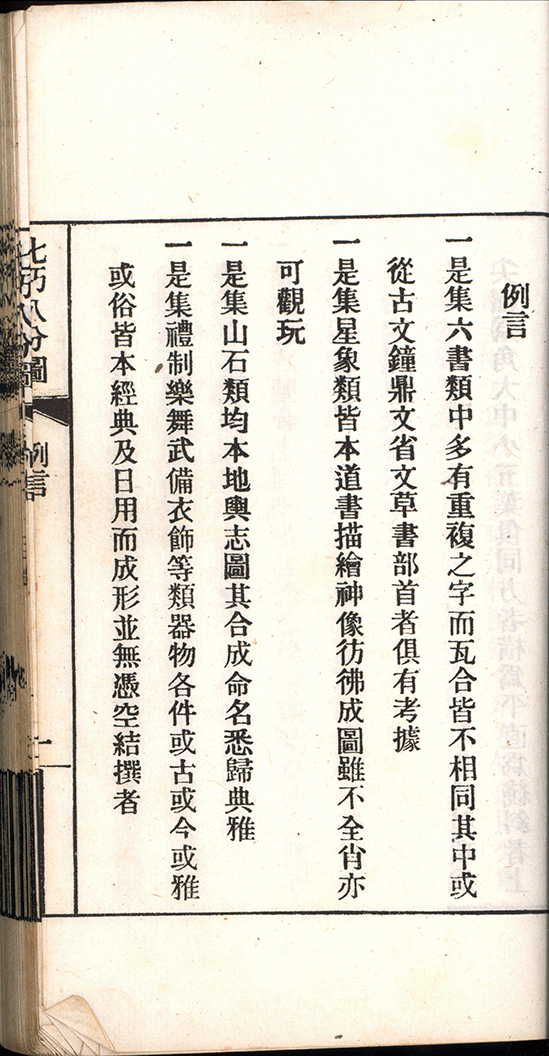 例言
一是集六書類中多有重複之字而瓦合皆不相同其中或
從古文鐘鼎文省文草書部首者俱有考據
一是集星象類皆本道書描繪神像彷彿成圖雖不全肖亦
可觀玩
一是集山石類均本地輿志圖其合成命名悉歸典雅
一是集禮制樂舞武備衣飾等類器物各件或古或今或雅
或俗皆本經典及日用而成形並無憑空結撰者
七巧八分圖
例言
一